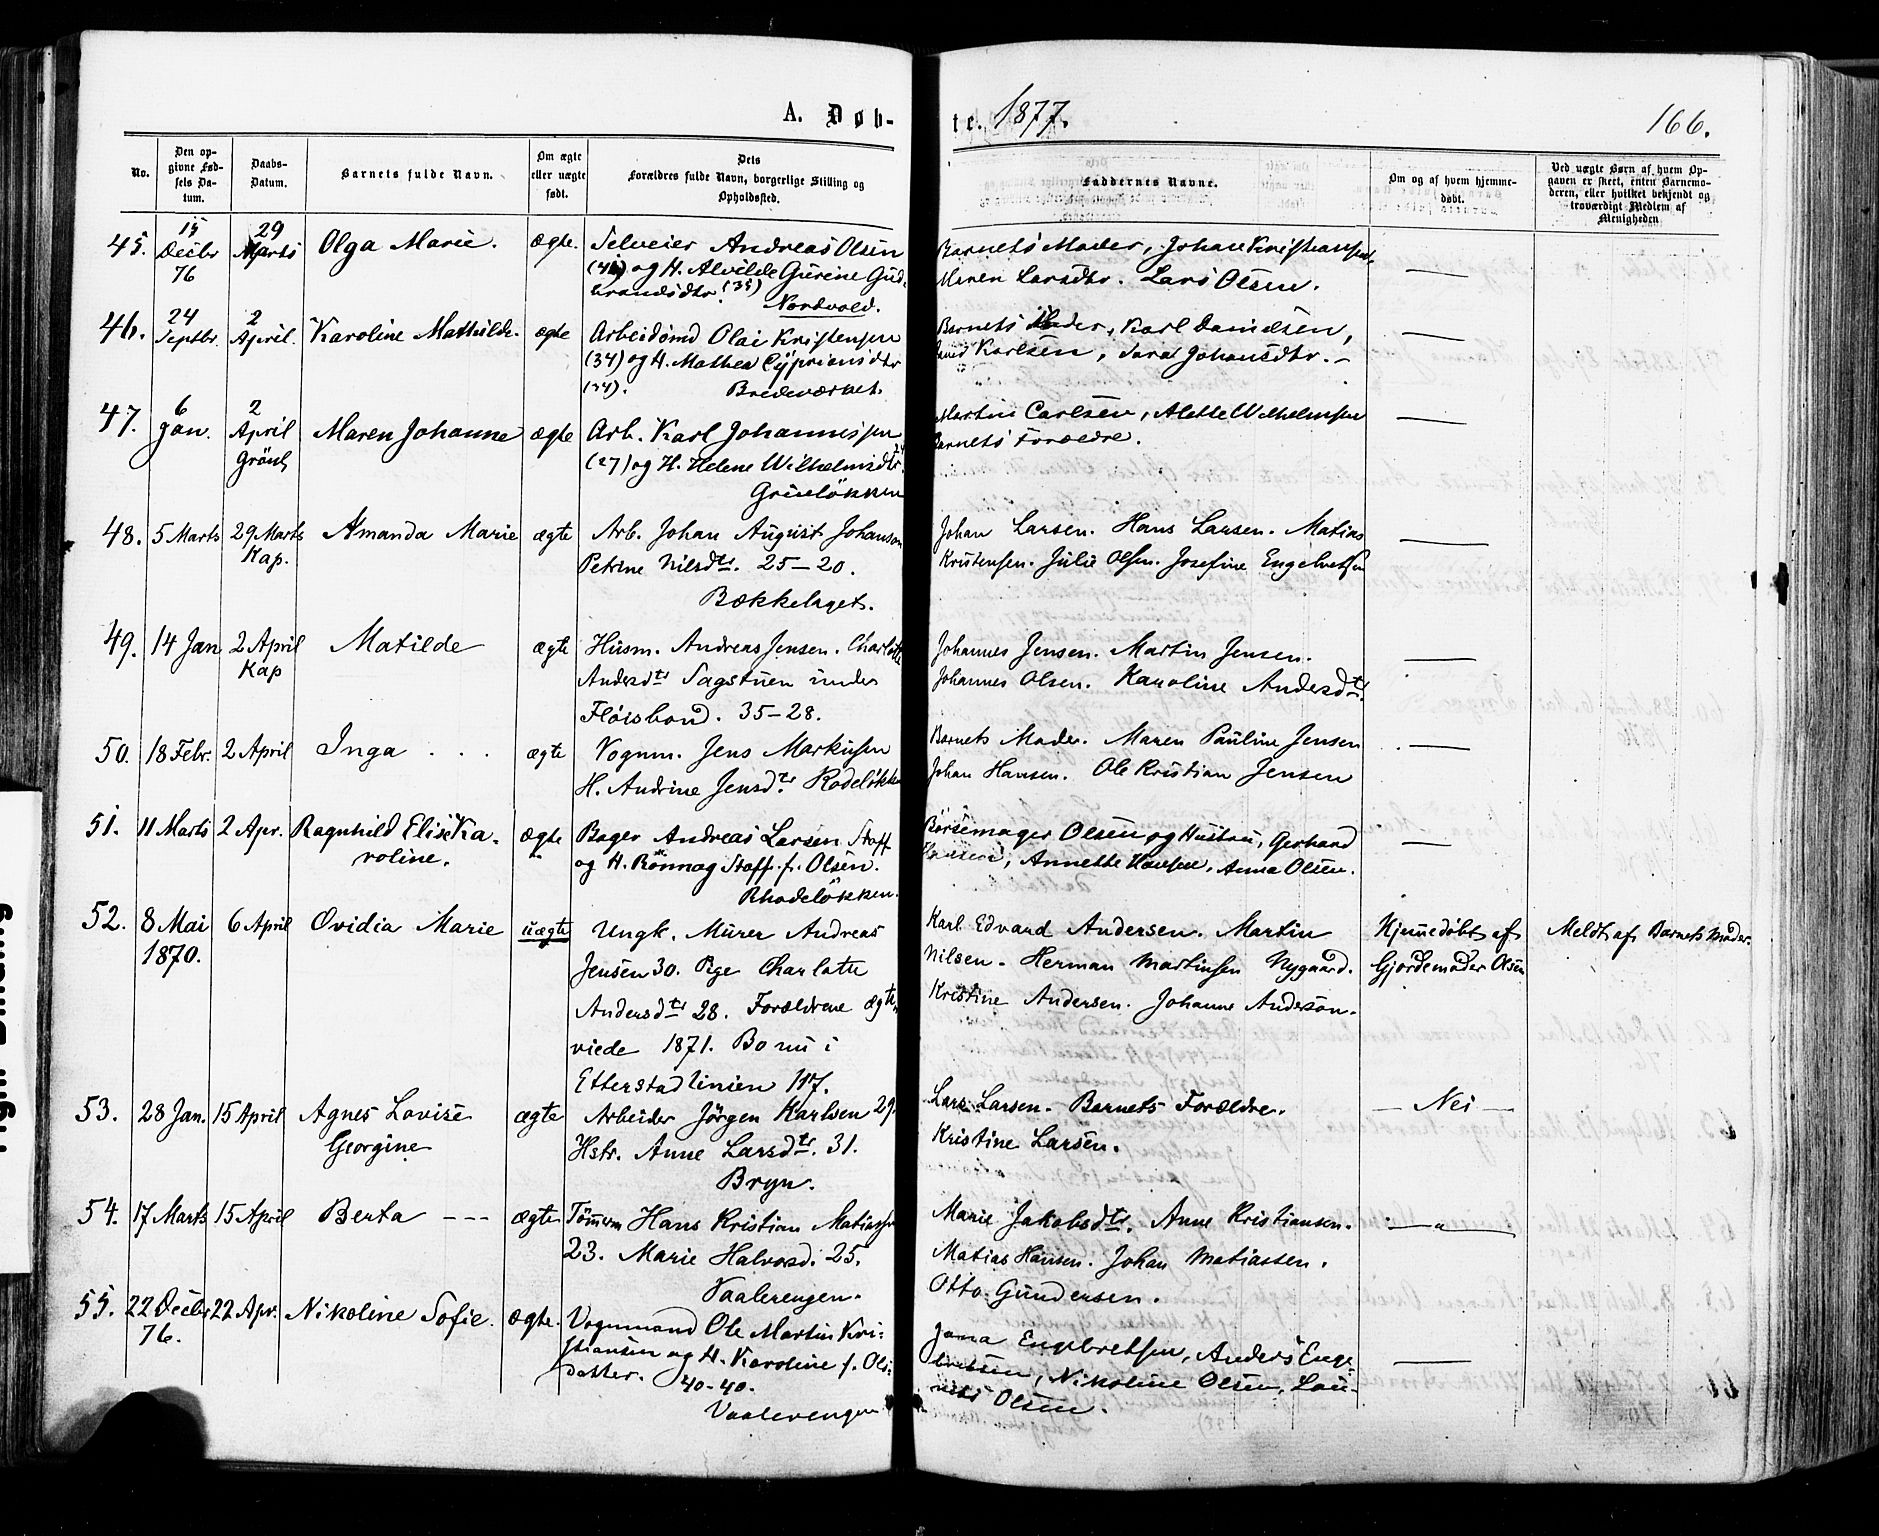 A. Døb-
te. 1877.
166.
No.
Den op-
givne Fød-
sels Da-
tum.
Daabs-
Datum.
Barnets fulde Navn.
Om ægte
eller uægte
født.
Dets
Forældres fulde Navn, borgerlige Stilling og
Opholdssted.
Faddernes Navne.
Om og af hvem hjemme-
døbt.
Ved uægte Børn af hvem Op-
gaven er skeet, enten Barnemo-
deren, eller hvilket bekjendt og
troværdigt Medlem af
Menigheden
45. 15 Decbr 76 29 Marts Olga Marie. ægte. Selveier Andreas Olsen
og H. Alvilde Gurine Gud-
brandsdtr. (35)
Nordvold.
Barnets Moder, Johan Kristiansen,
Maren Larsdtr. Lars Olsen.
46. 24 Septbr. 2 April. Karoline Mathilde. ægte Arbeidsmd Olai Kristensen
(34) og H. Mathea Cypriansdtr
(34). Bredeværket.
Barnets Moder, Karl Danielsen,
Karlsen, Sara Johansdtr. -
47. 6 Jan. 2 April Grönl. Maren Johanne ægte Arb. Karl Johannessen
(27) og H. Helene Wilhelmsdtr.
Grüneløkken
Martin Carlsen, Alette Wilhelmsen
Barnets Forældre.
48. 5 Marts 29 Marts Kap. Amanda Marie ægte Arb. Johan August Johanson
Petrine Nilsdtr. 25-20.
Bækkelaget.
Johan Larsen. Hans Larsen. Matias
Kristensen. Julie Olsen. Josefine Engebretsen
49. 14 Jan 2 April Kap Matilde ægte Husm. Andreas Jensen. Charlotte
Andersdtr Sagstuen under
Fløisbond. 35-28.
Johannes Jensen. Martin Jensen.
Johannes Olsen. Karoline Andersdtr.
50. 18 Febr. 2 April Inga . . ægte Vognm. Jens Markusen
H. Andrine Jensdtr. Rodeløkken
Barnets Moder. Maren Pauline Jensen
Johan Hansen. Ole Kristian Jensen
51. 11 Marts 2 Apr. Ragnhild Elise Ka-
roline. ægte Bager Andreas Larsen Staff
og H. Rönnag Staff f. Olsen.
Rhodeløkken.
Børsemager Olsen og Hustru, Gerhard
Hansen, Annette Hansen, Anna Olsen.
52. 8 Mai 1870. 6 April Ovidia Marie uægte Ungk. Murer Andreas
Jensen 30. Pge Charlotte
Andersdtr 28. Forældrene ægte
viede 1871. Bo nu i
Etterstadlinien 117.
Karl Edvard Andersen. Martin
Nilsen. Herman Martinsen Nygaard.
Kristine Andersen. Johanne Anderson.
Hjemmedøbt af
Gjordemoder Olsen
Meldt af Barnets Moder.
53. 28 Jan. 15 April Agnes Lovise
Georgine ægte Arbeider Jörgen Karlsen 29.
Hstr. Anne Larsdtr. 31.
Bryn.
Lars Larsen. Barnets Forældre.
Kristine Larsen.
- Nei -
54. 17 Marts 15 April Berta --- ægte Tömrm Hans Kristian Matiassen
23. Marie Halvorsd. 25.
Vaalerengen.
Marie Jakobsdtr. Anne Kristiansen.
Matias Hansen. Johan Matiassen.
Otto Gundersen.
- " -
55. 22 Decbr 76. 22 Apr. Nikoline Sofie. ægte. Vognmand Ole Martin Kri-
stiansen og H. Karoline f. Ols-
datter. 40-40.
Vaalerengen
Engebretsen, Anders Enge-
bretsen, Nikoline Olsen, Lau-
rits Olsen.